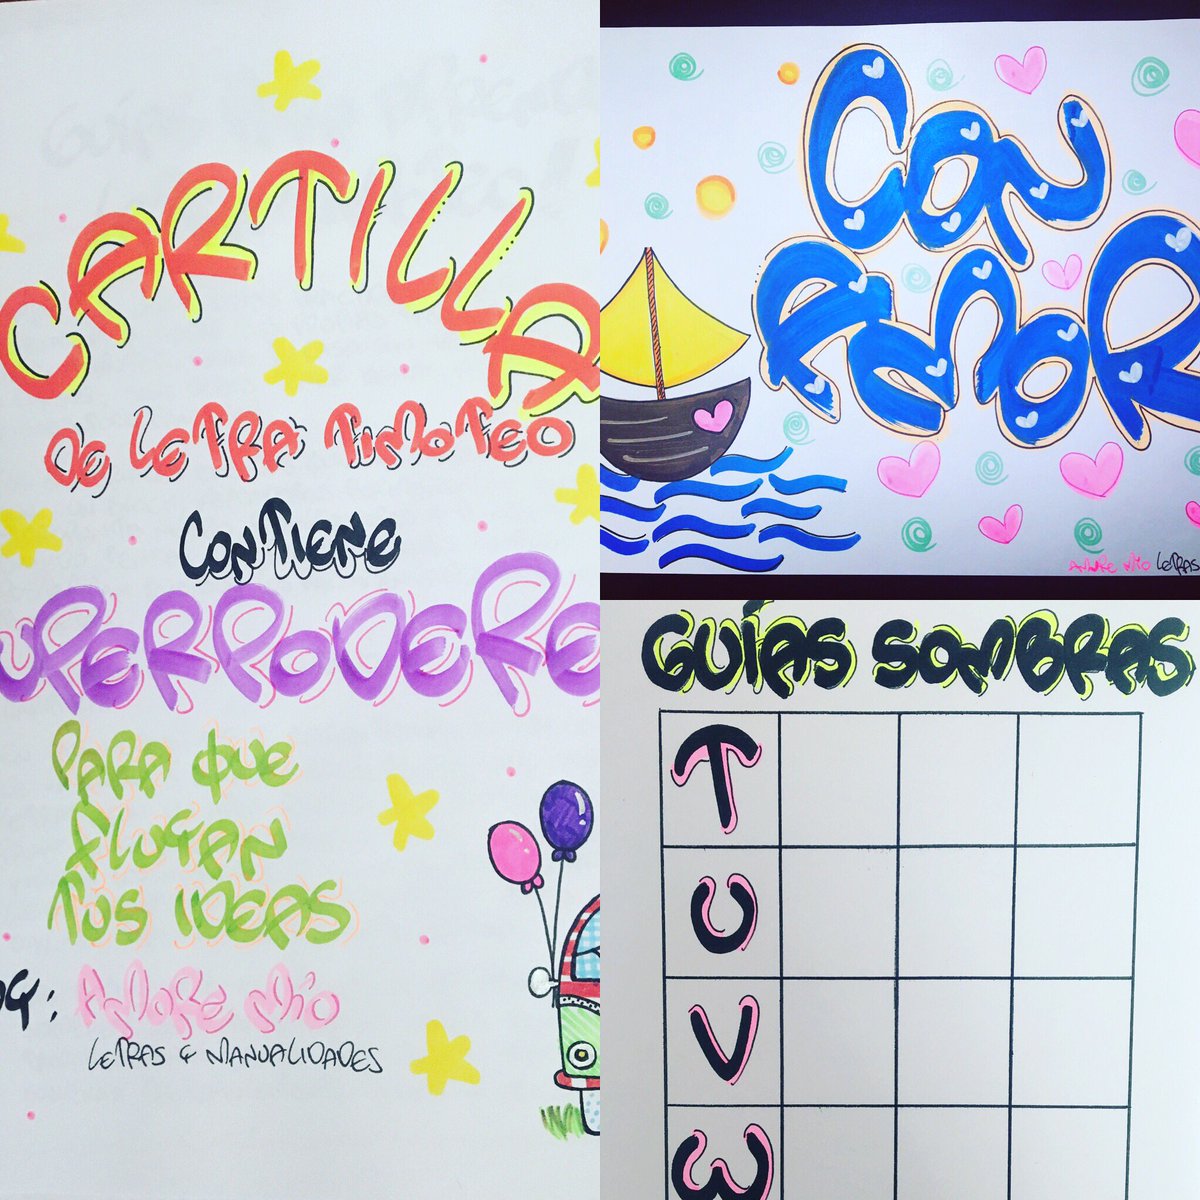 CARTILLA
DE LETRA TIMOTEO
CONTIENE
UPERPODERE
PARA QUE
FLUYAN
TUS IDEAS
AMORE MIO
LETRAS Y MANUALIDADES
CON
AMOR
AMORE MIO LETRAS
GUÍAS SOMBRAS
T
U
V
W